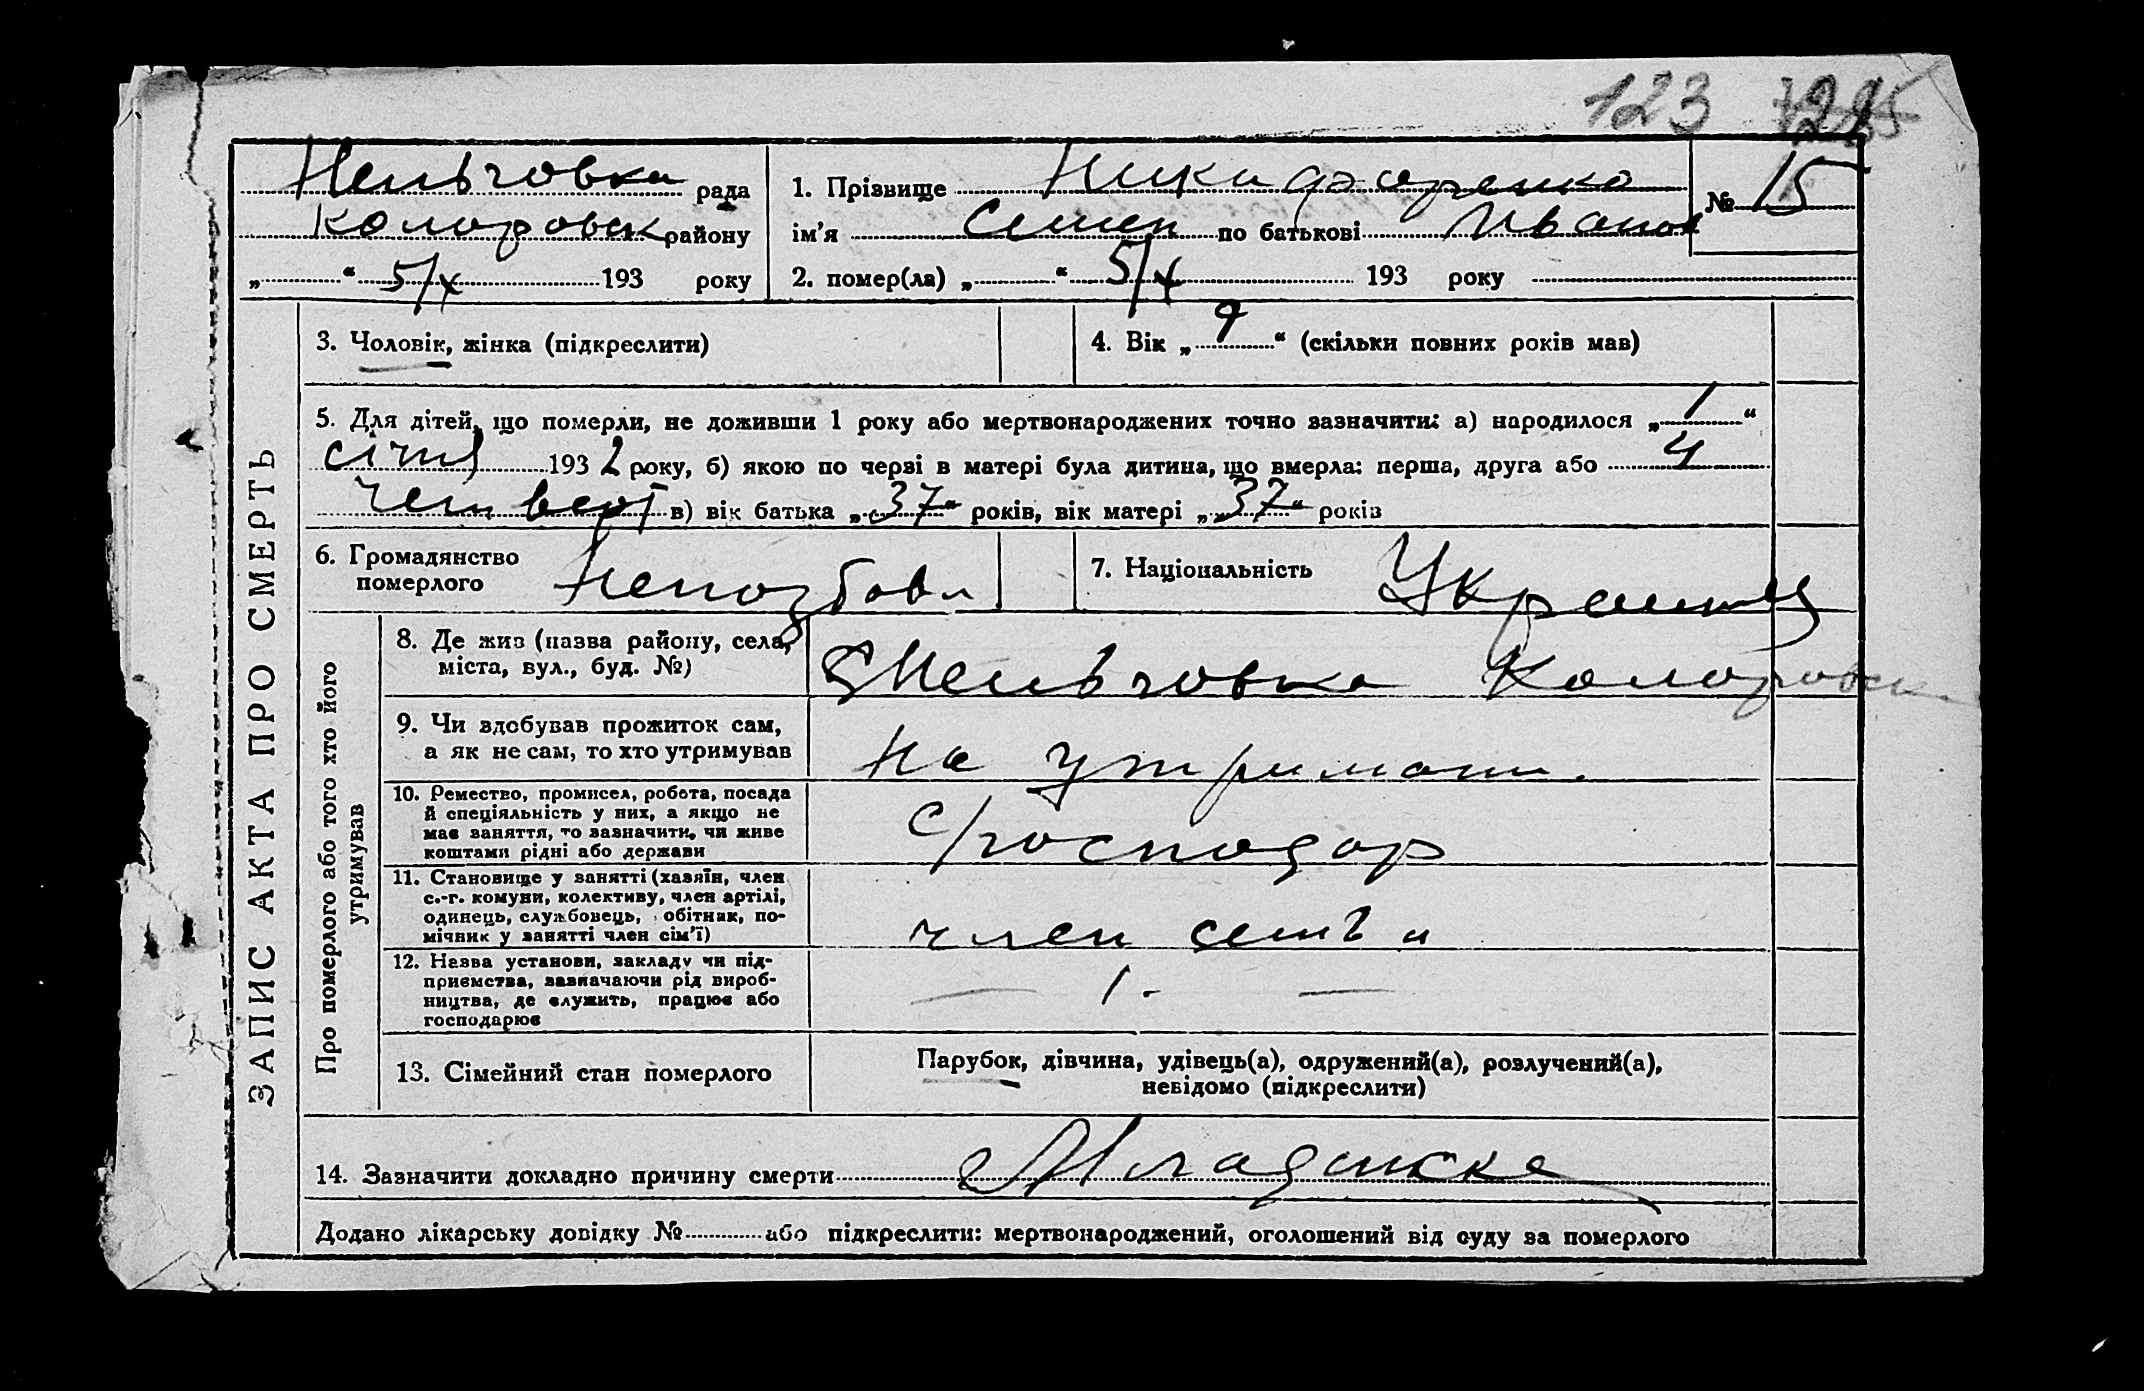 123
Нельговка рада
Колоровск району
„ “ 5/X 193 року
1. Прізвище Никифоренко
№ 15
ім'я Семен по батькові Иванов
2. помер(ла) „ “ 5/X 193 року
ЗАПИС АКТА ПРО СМЕРТЬ
3. Чоловік, жінка (підкреслити)
4. Вік „ 9 “ (скільки повних років мав)
5. Для дітей, що померли, не доживши 1 року або мертвонароджених точно зазначити: а) народилося „ 1 “
січня 1932 року, б) якою по черзі в матері була дитина, що вмерла: перша, друга або 4
четверт в) вік батька „ 37 “ років, вік матері „ 37 “ років
6. Громадянство
померлого
Непозбавл
7. Національність
Украинец
Про померлого або того хто його
утримував
8. Де жив (назва району, села,
міста, вул., буд. №)
Нельговка Колоровск
9. Чи здобував прожиток сам,
а як не сам, то хто утримував
на утриман.
10. Ремество, промисел, робота, посада
й спеціяльність у них, а якщо не
має заняття, то зазначити, чи живе
коштами рідні або держави
с/господар
11. Становище у занятті (хазяїн, член
с.-г. комуни, колективу, член артілі,
одинець, службовець, обітник, по-
мічник у занятті член сім'ї)
член семьи
12. Назва установи, закладу чи під-
приємства, зазначаючи рід вироб-
ництва, де служить, працює або
господарює
— / . —
13. Сімейний стан померлого
Парубок, дівчина, удівець(а), одружений(а), розлучений(а),
невідомо (підкреслити)
14. Зазначити докладно причину смерти Младенске
Додано лікарську довідку № або підкреслити: мертвонароджений, оголошений від суду за померлого